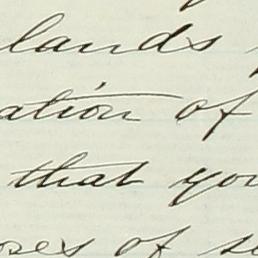 lands
ation of
that you
oses of se